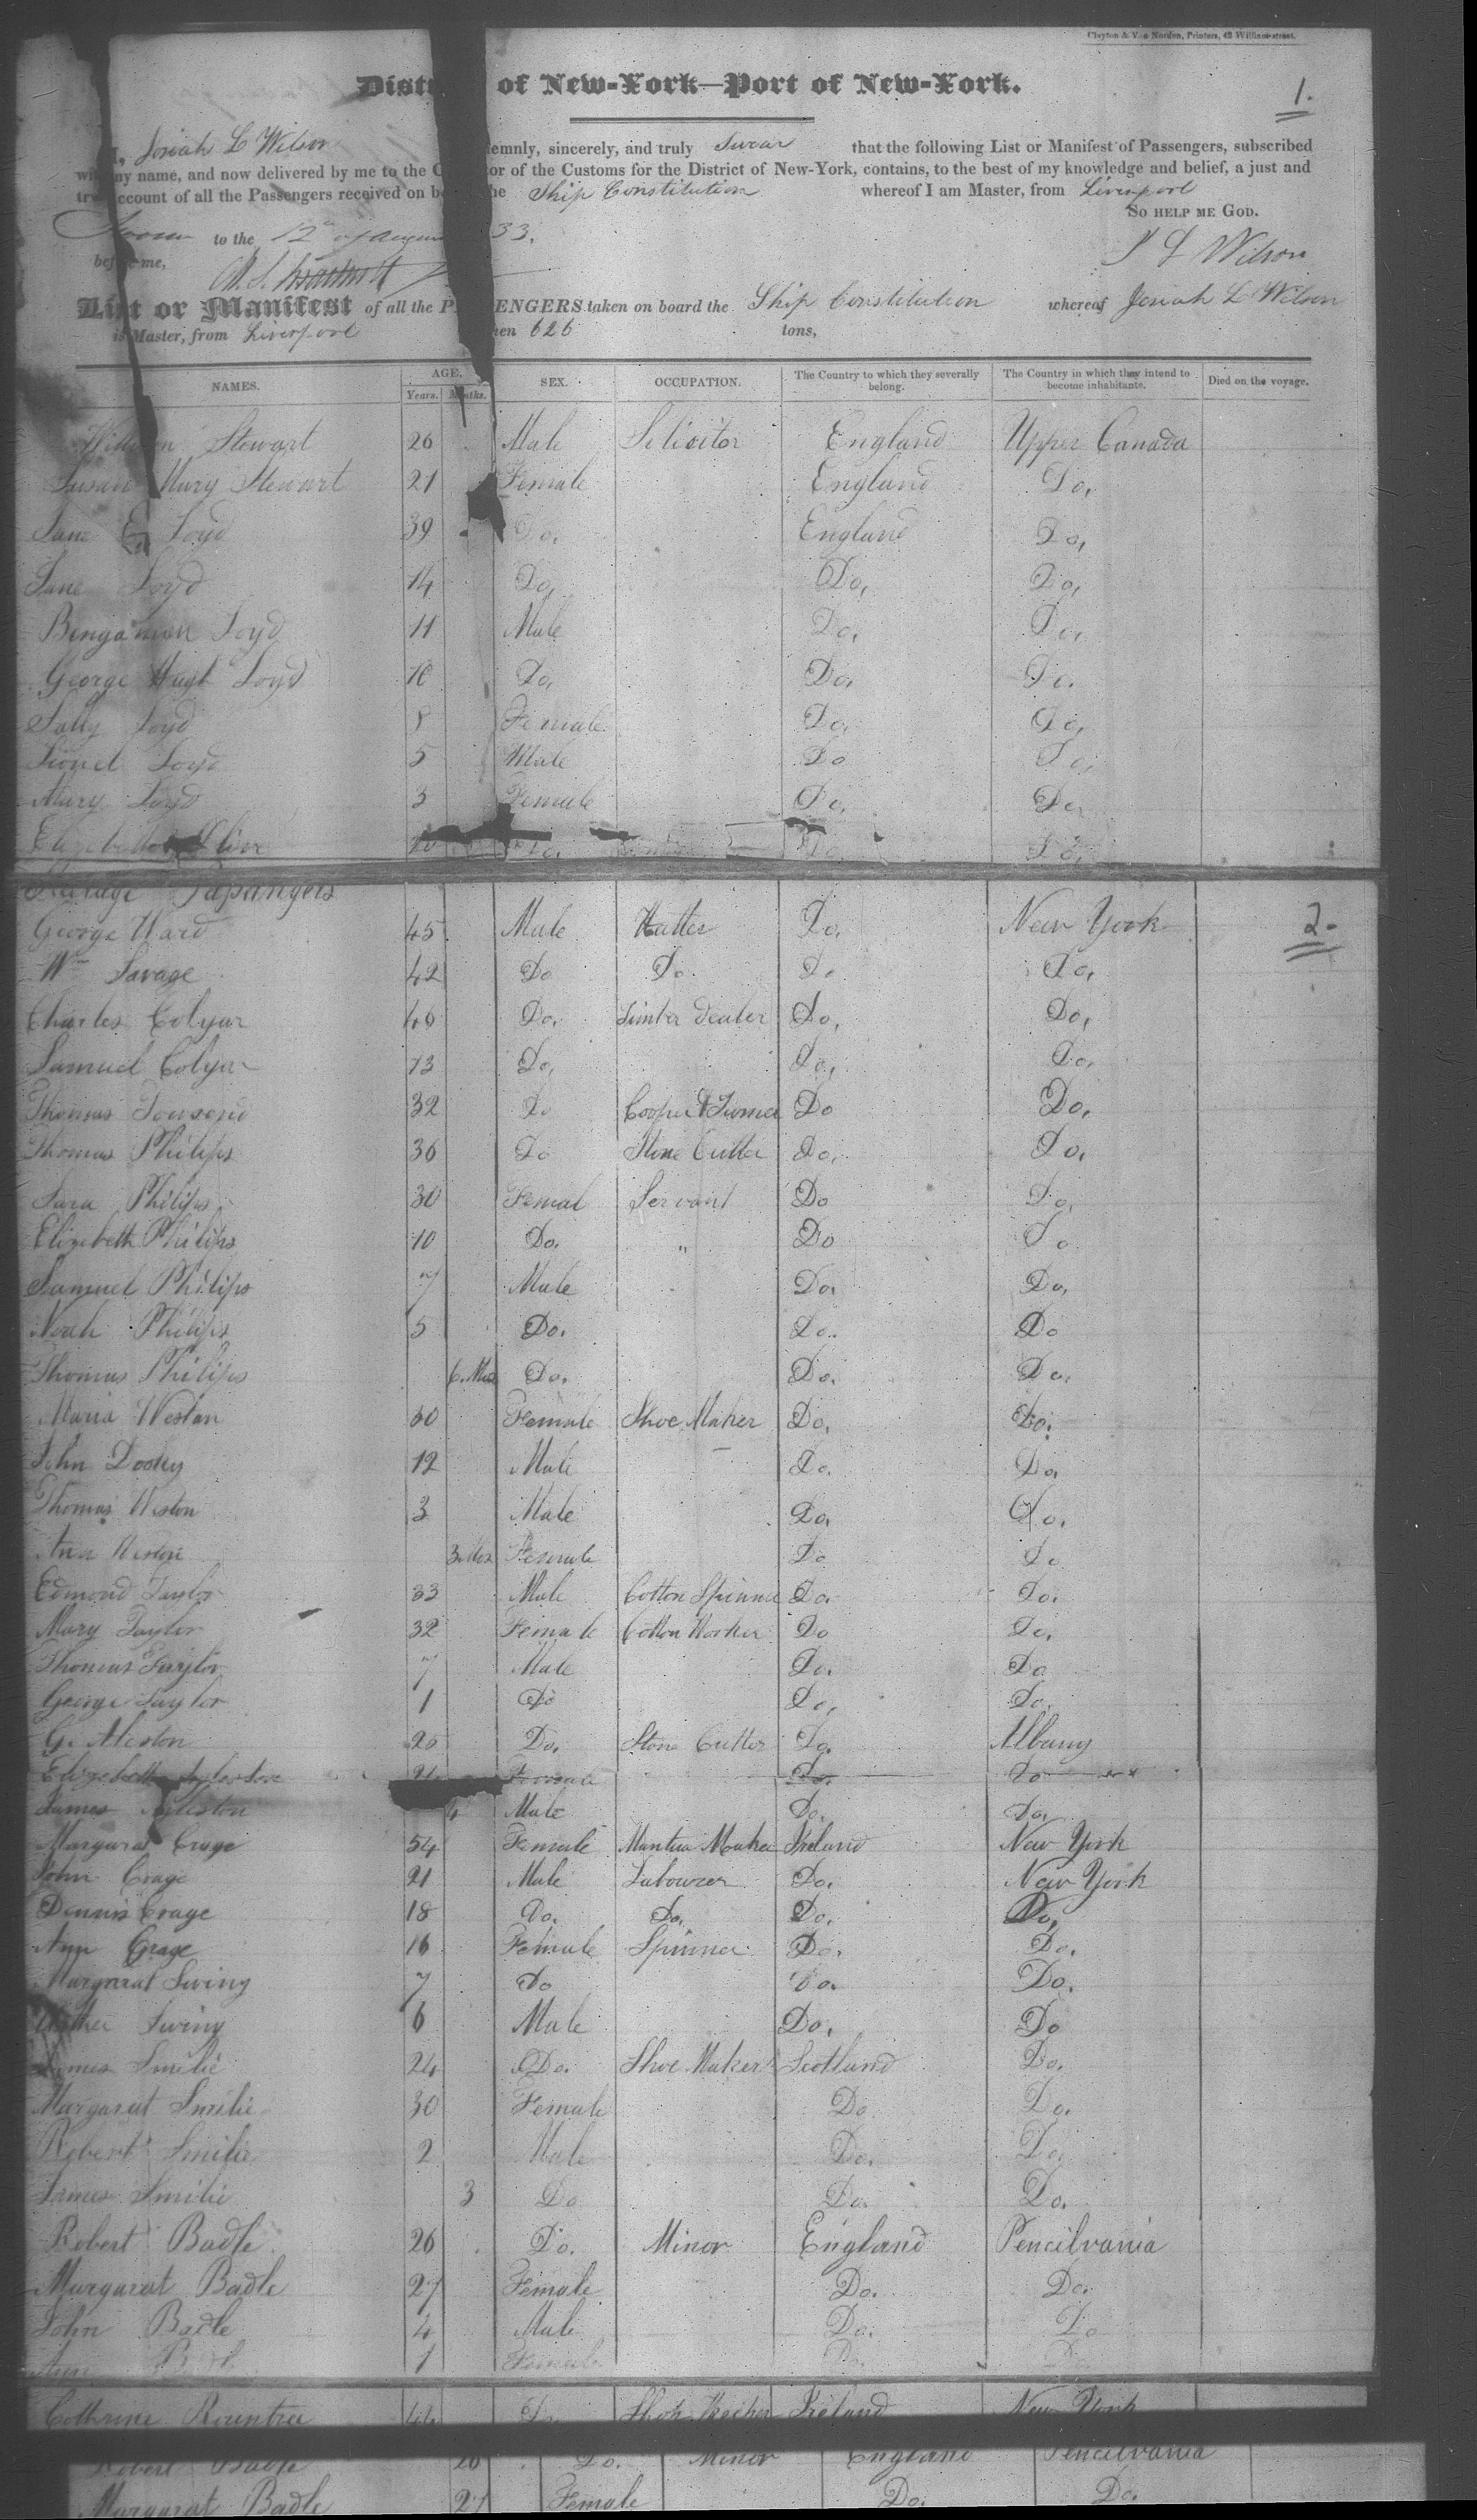 Clayton & Van Norden, Printers, 42 William-street.
Distr of New-York—Port of New-York.
1.
I, Josiah L Wilson lemnly, sincerely, and truly Swear that the following List or Manifest of Passengers, subscribed
with my name, and now delivered by me to the C or of the Customs for the District of New-York, contains, to the best of my knowledge and belief, a just and
true account of all the Passengers received on bo he Ship Constitution whereof I am Master, from Liverpool
So help me God.
Sworn to the 12th of August 33.
before me, J L Wilson
List or Manifest of all the P ENGERS taken on board the Ship Constitution whereof Josiah L Wilson
is Master, from Liverpool hen 626 tons,
NAMES. AGE. SEX. OCCUPATION. The Country to which they severally belong. The Country in which they intend to become inhabitants. Died on the voyage.
Years. Months.
William Stewart 26 Male Solicitor England Upper Canada
Susan Mary Stewart 21 Female England Do,
Jane Loyd 39 Do. England Do,
Jane Loyd 14 Do, Do, Do,
Bengamon Loyd 11 Male Do, Do,
George Hugh Loyd 10 Do, Do, Do.
Sally Loyd 8 Female Do, Do,
Lionel Loyd 5 Male Do Do,
Mary Loyd 3 Female Do, Do,
Elizabeth Oliver Do. Do Do,
Stearage Passangers
George Ward 45 Male Hatter Do, New York
2.
Wm Savage 42 Do Do. Do Do,
Charles Colyar 40 Do, Timber Dealer Do, Do,
Samuel Colyar 13 Do, Do, Do,
Thomas Townsend 32 Do Cooper & Turner Do Do,
Thomas Philips 36 Do Stone Cutter Do, Do,
Sara Philips 30 Femal Servant Do Do,
Elizebeth Philips 10 Do. " Do Do
Samuel Philips 7 Male Do, Do,
Noah Philips 5 Do. Do. Do
Thomas Philips 6. Mos Do. Do. Do.
Maria Weston 30 Female Shoe Maker Do. Do.
John Dooley 12 Male Do. Do,
Thomas Weston 3 Male Do, Do,
Ann Weston 3. Mos Female Do Do
Edmond Taylor 33 Male Cotton Spinner Do. Do.
Mary Taylor 32 Female Cotton Worker Do Do.
Thomas Taylor 7 Male Do. Do
George Taylor 1 Do Do, Do.
G. Aleston 25 Do. Stone Cutter Do. Albany
Elizebeth Female Do. Do
James 4 Male Do. Do,
Margarat Crage 54 Female Mantua Maker Ireland New York
John Crage 21 Male Labourer Do. New York
Dennis Crage 18 Do. Do. Do. Do,
Ann Crage 16 Female Spinner Do. Do.
Margarat Swiny 7 Do Do. Do.
Swiny 6 Male Do. Do
James Smilie 24 Do. Shoe Maker Scotland Do.
Margarat Smilie 30 Female Do Do.
Robert Smilie 2 Male Do. Do,
James Smilie 3 Do Do. Do.
Robert Badle 26 Do. Minor England Pencilvania
Margarat Badle 27 Female Do. Do.
John Badle 4 Male Do. Do
Ann Badle 1 Female Do. Do
Cothrine Rountree 44 Do Ireland New York
Robert Badle 26 Do. Minor England Pencilvania
Margarat Badle 27 Female Do. Do.